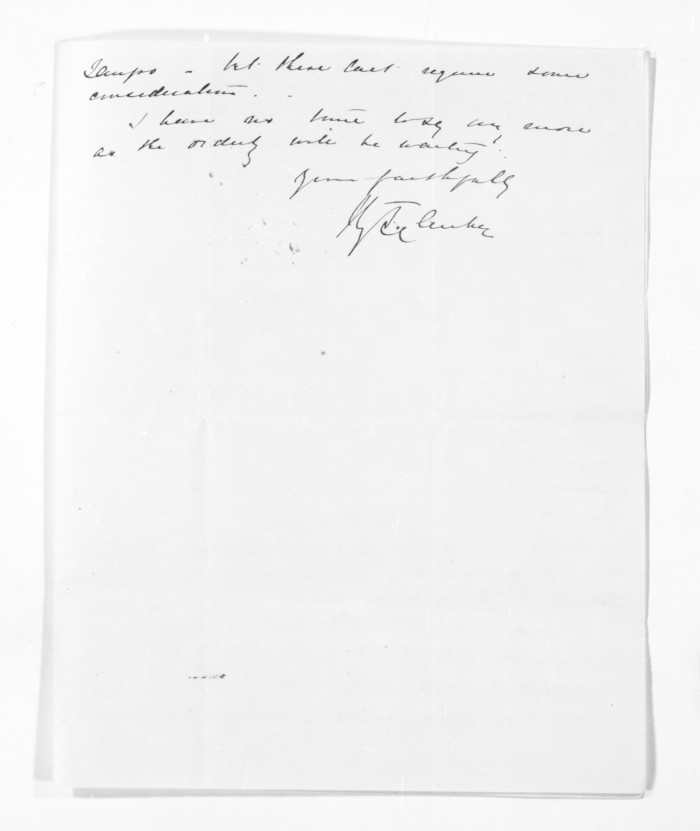 Taupo - but these last require some
consideration.
I have no time to say any more
as the orderly will be waiting.
Yours faithfully